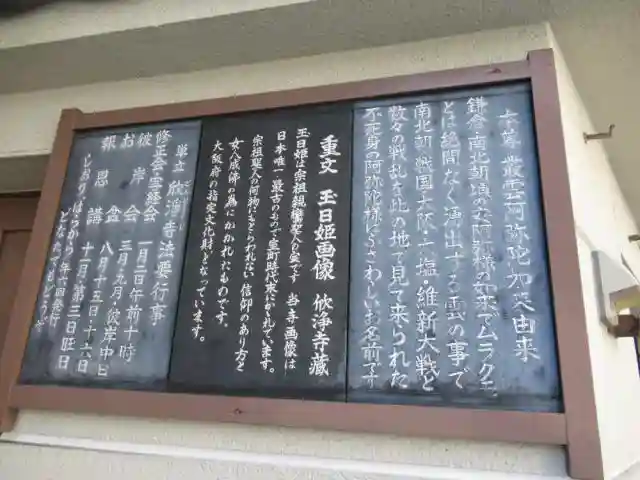 大幕 叢雲阿弥陀如来由来
鎌倉・南北朝頃の木阿弥様の如来でムラクモ
とは絶間なく湧出する雲の事で
南北朝・戦国・大阪・大塩・維新・大戦と
数々の戦乱を此の地で見て来られた
不死身の阿弥陀様にふさわしいお名前です
重文 玉日姫画像 欣浄寺蔵
玉日姫は宗祖親鸞聖人の室です 当寺画像は
日本唯一最古のもので室町時代末にかかれています。
宗祖聖人の何物にもとらわれない信仰のあり方と
女人成佛の為にかかれたものです。
大阪府の指定文化財となっています。
単立 欣浄寺法要行事
修正会・宝経会 一月二日午前十時
彼岸会 三月九月、彼岸中日
お盆 八月十五日、十六日
報恩講 十一月第三日旺日
しおりはらから 年六回発行
どなたでもどうぞ